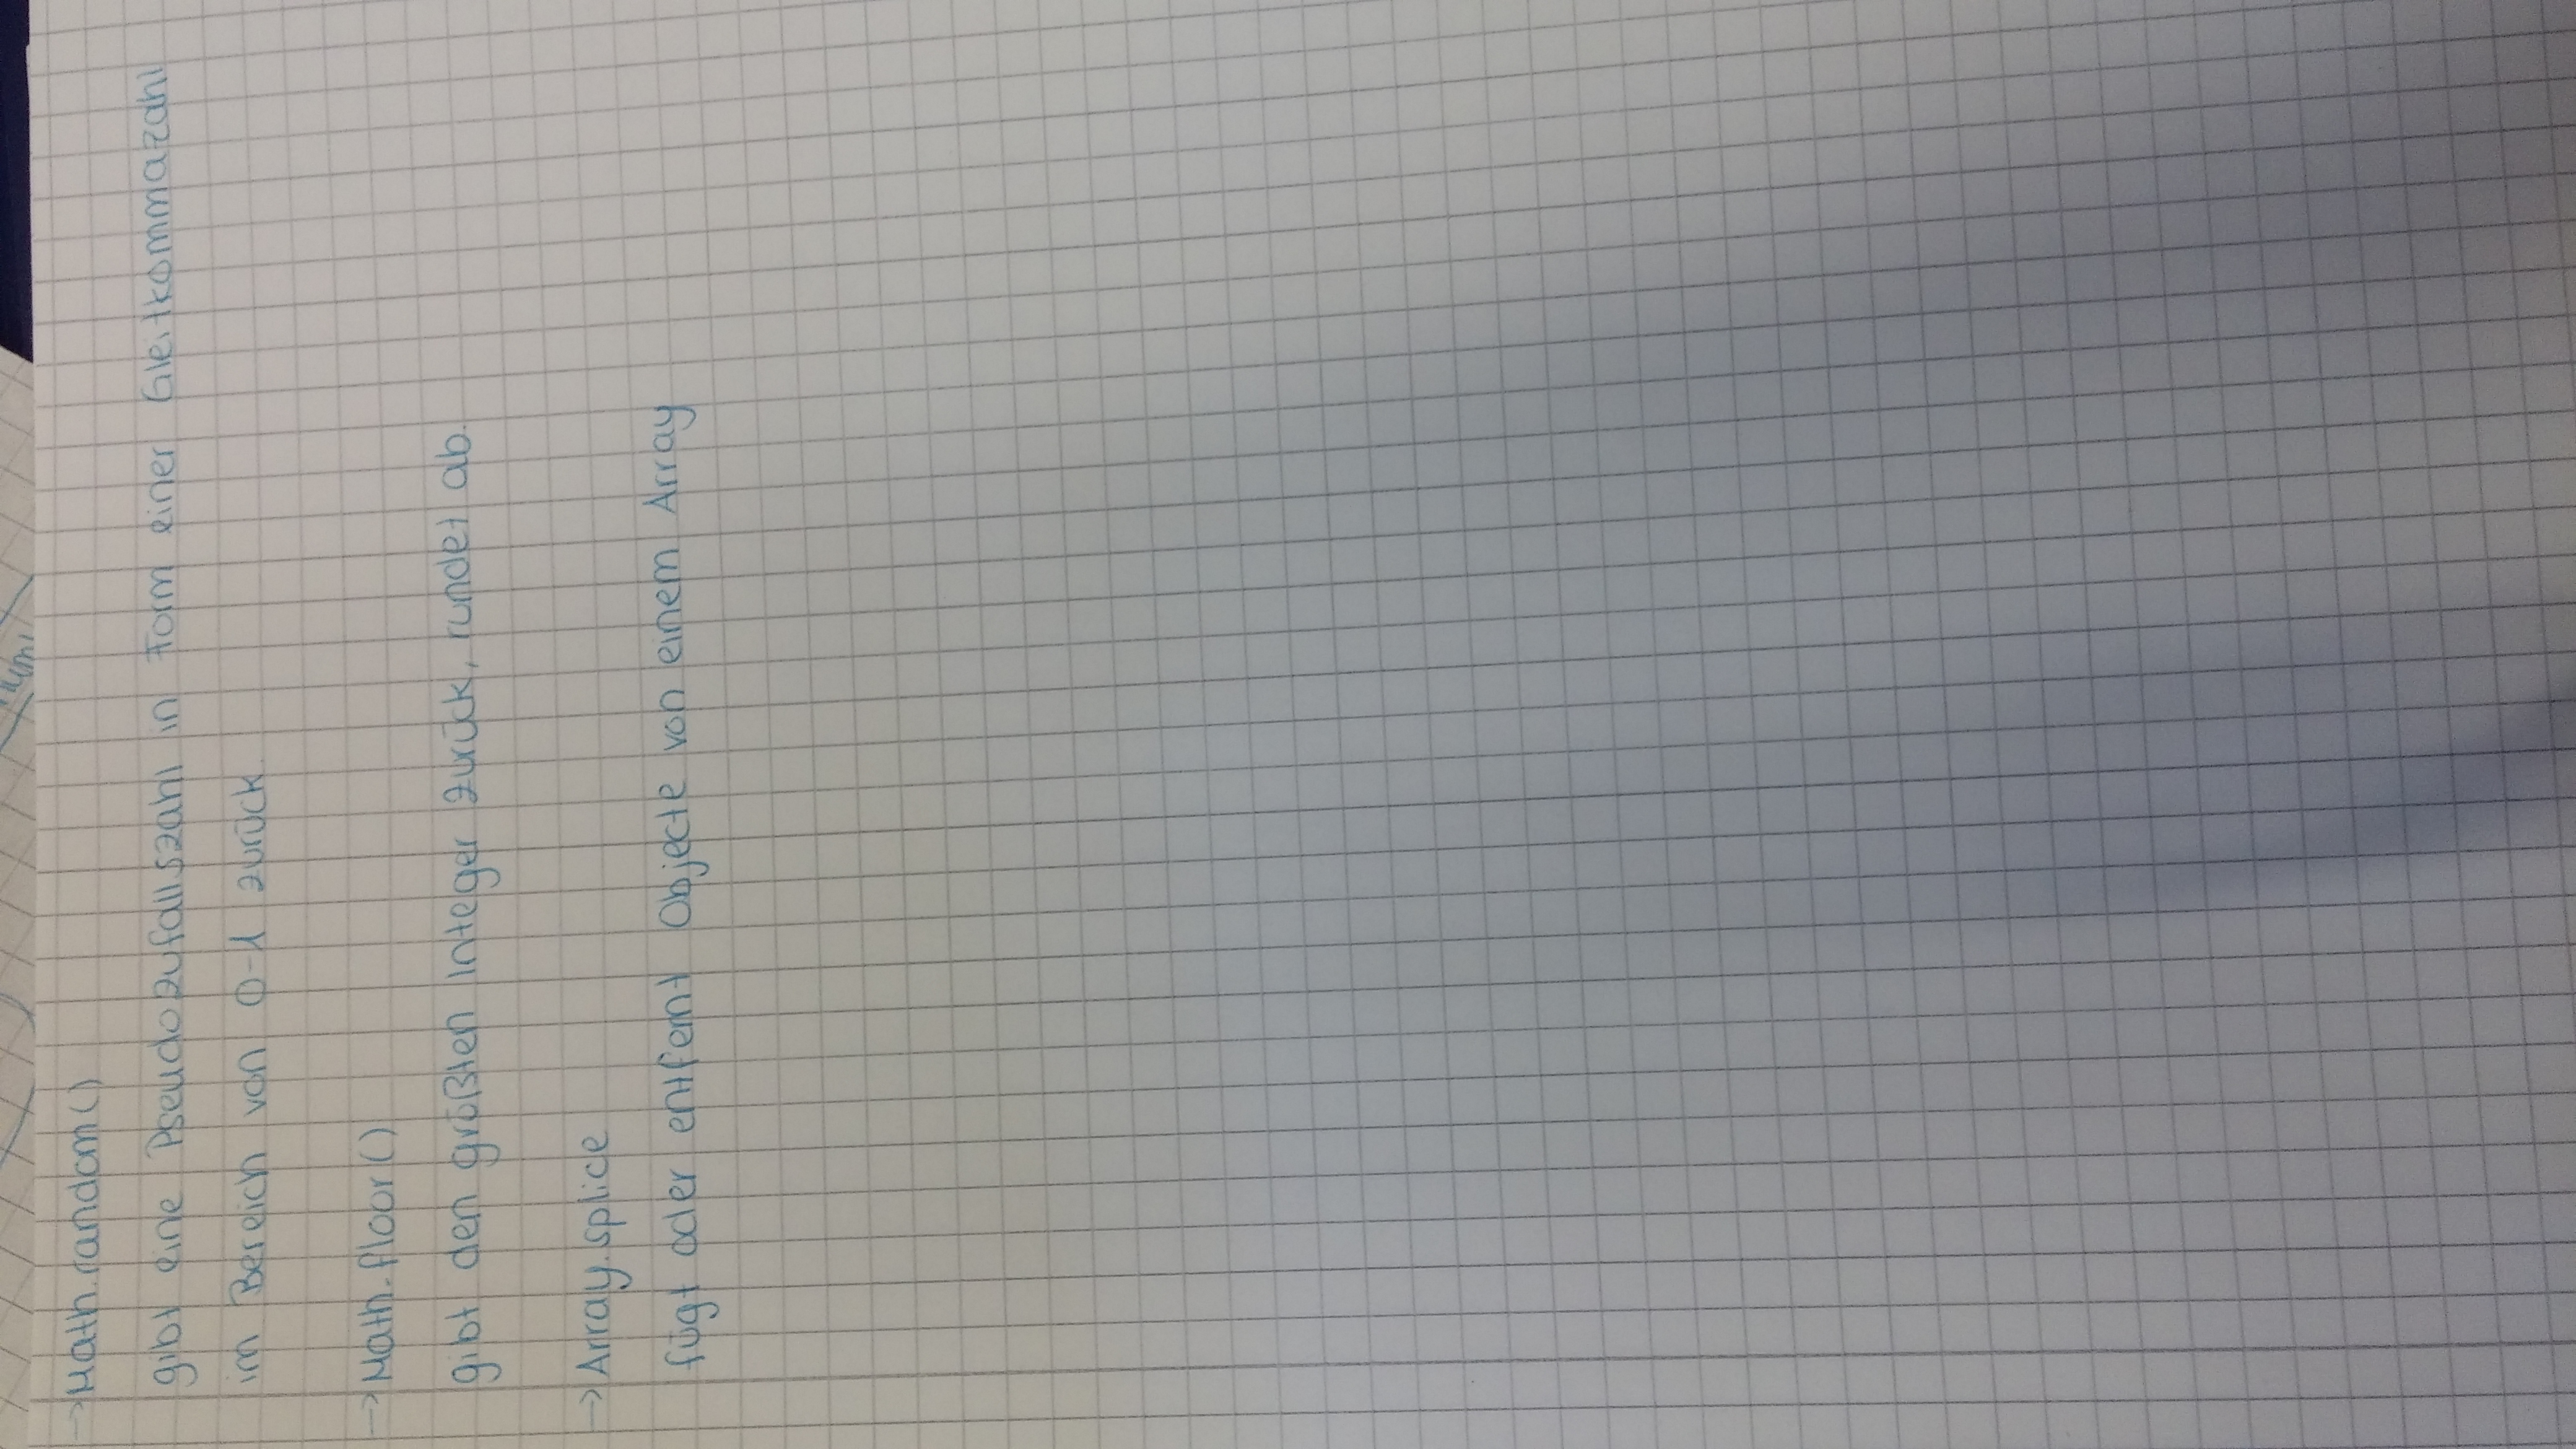 → Math.random()
gibt eine Pseudozufallszahl in Form einer Gleitkommazahl
im Bereich von 0-1 zurück.
→ Math.floor()
gibt den größten Integer zurück, rundet ab.
→ Array.splice
fügt oder entfernt Objecte von einem Array